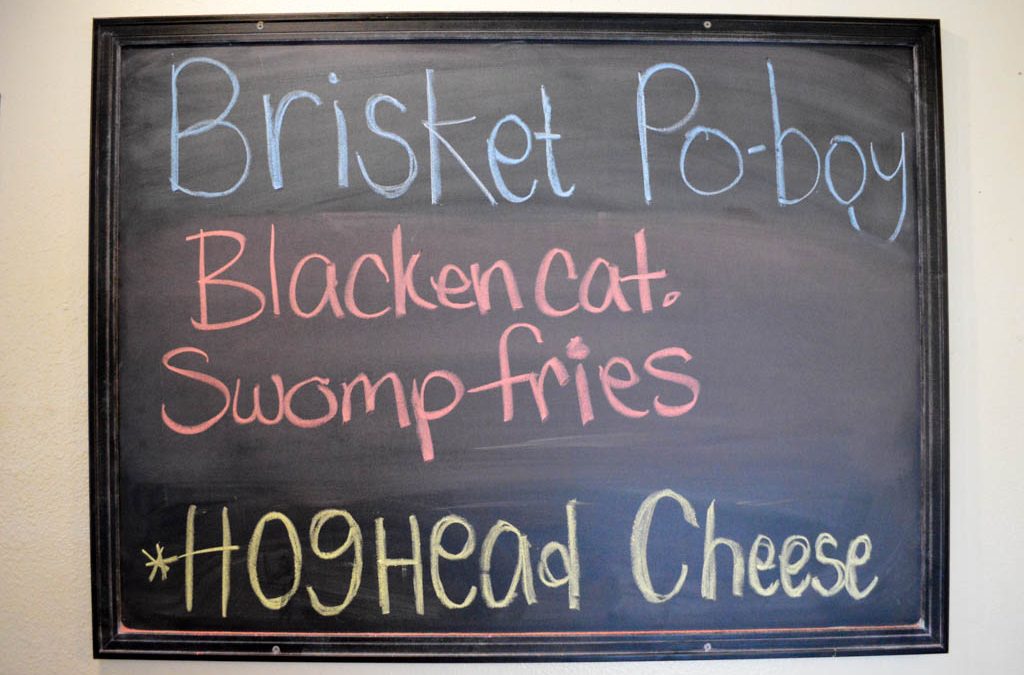 Brisket Po-boy
Blacken cat.
Swomp fries
*HogHead Cheese